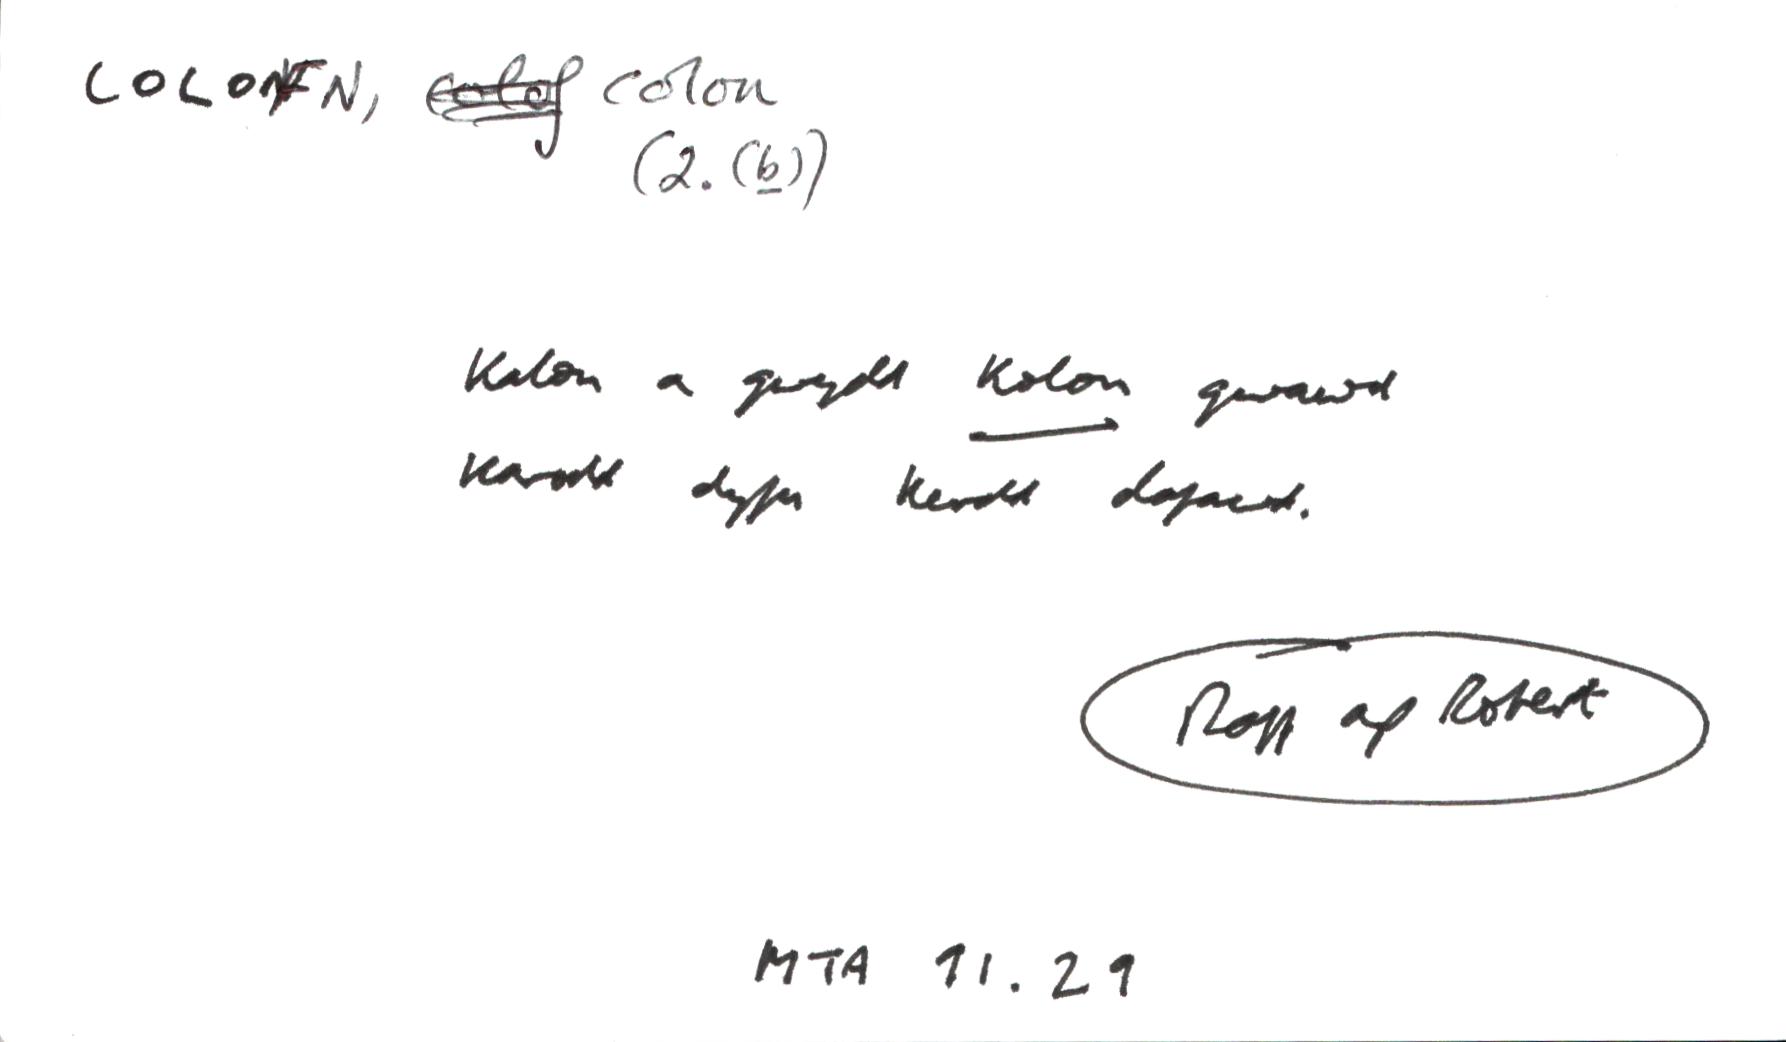 COLOFN, colon
(2. (b))
Kalon a gwydd Kolon gwawd
Karodd dyfu Kerdd dafawd.
Roff ap Robert
MTA 91.29